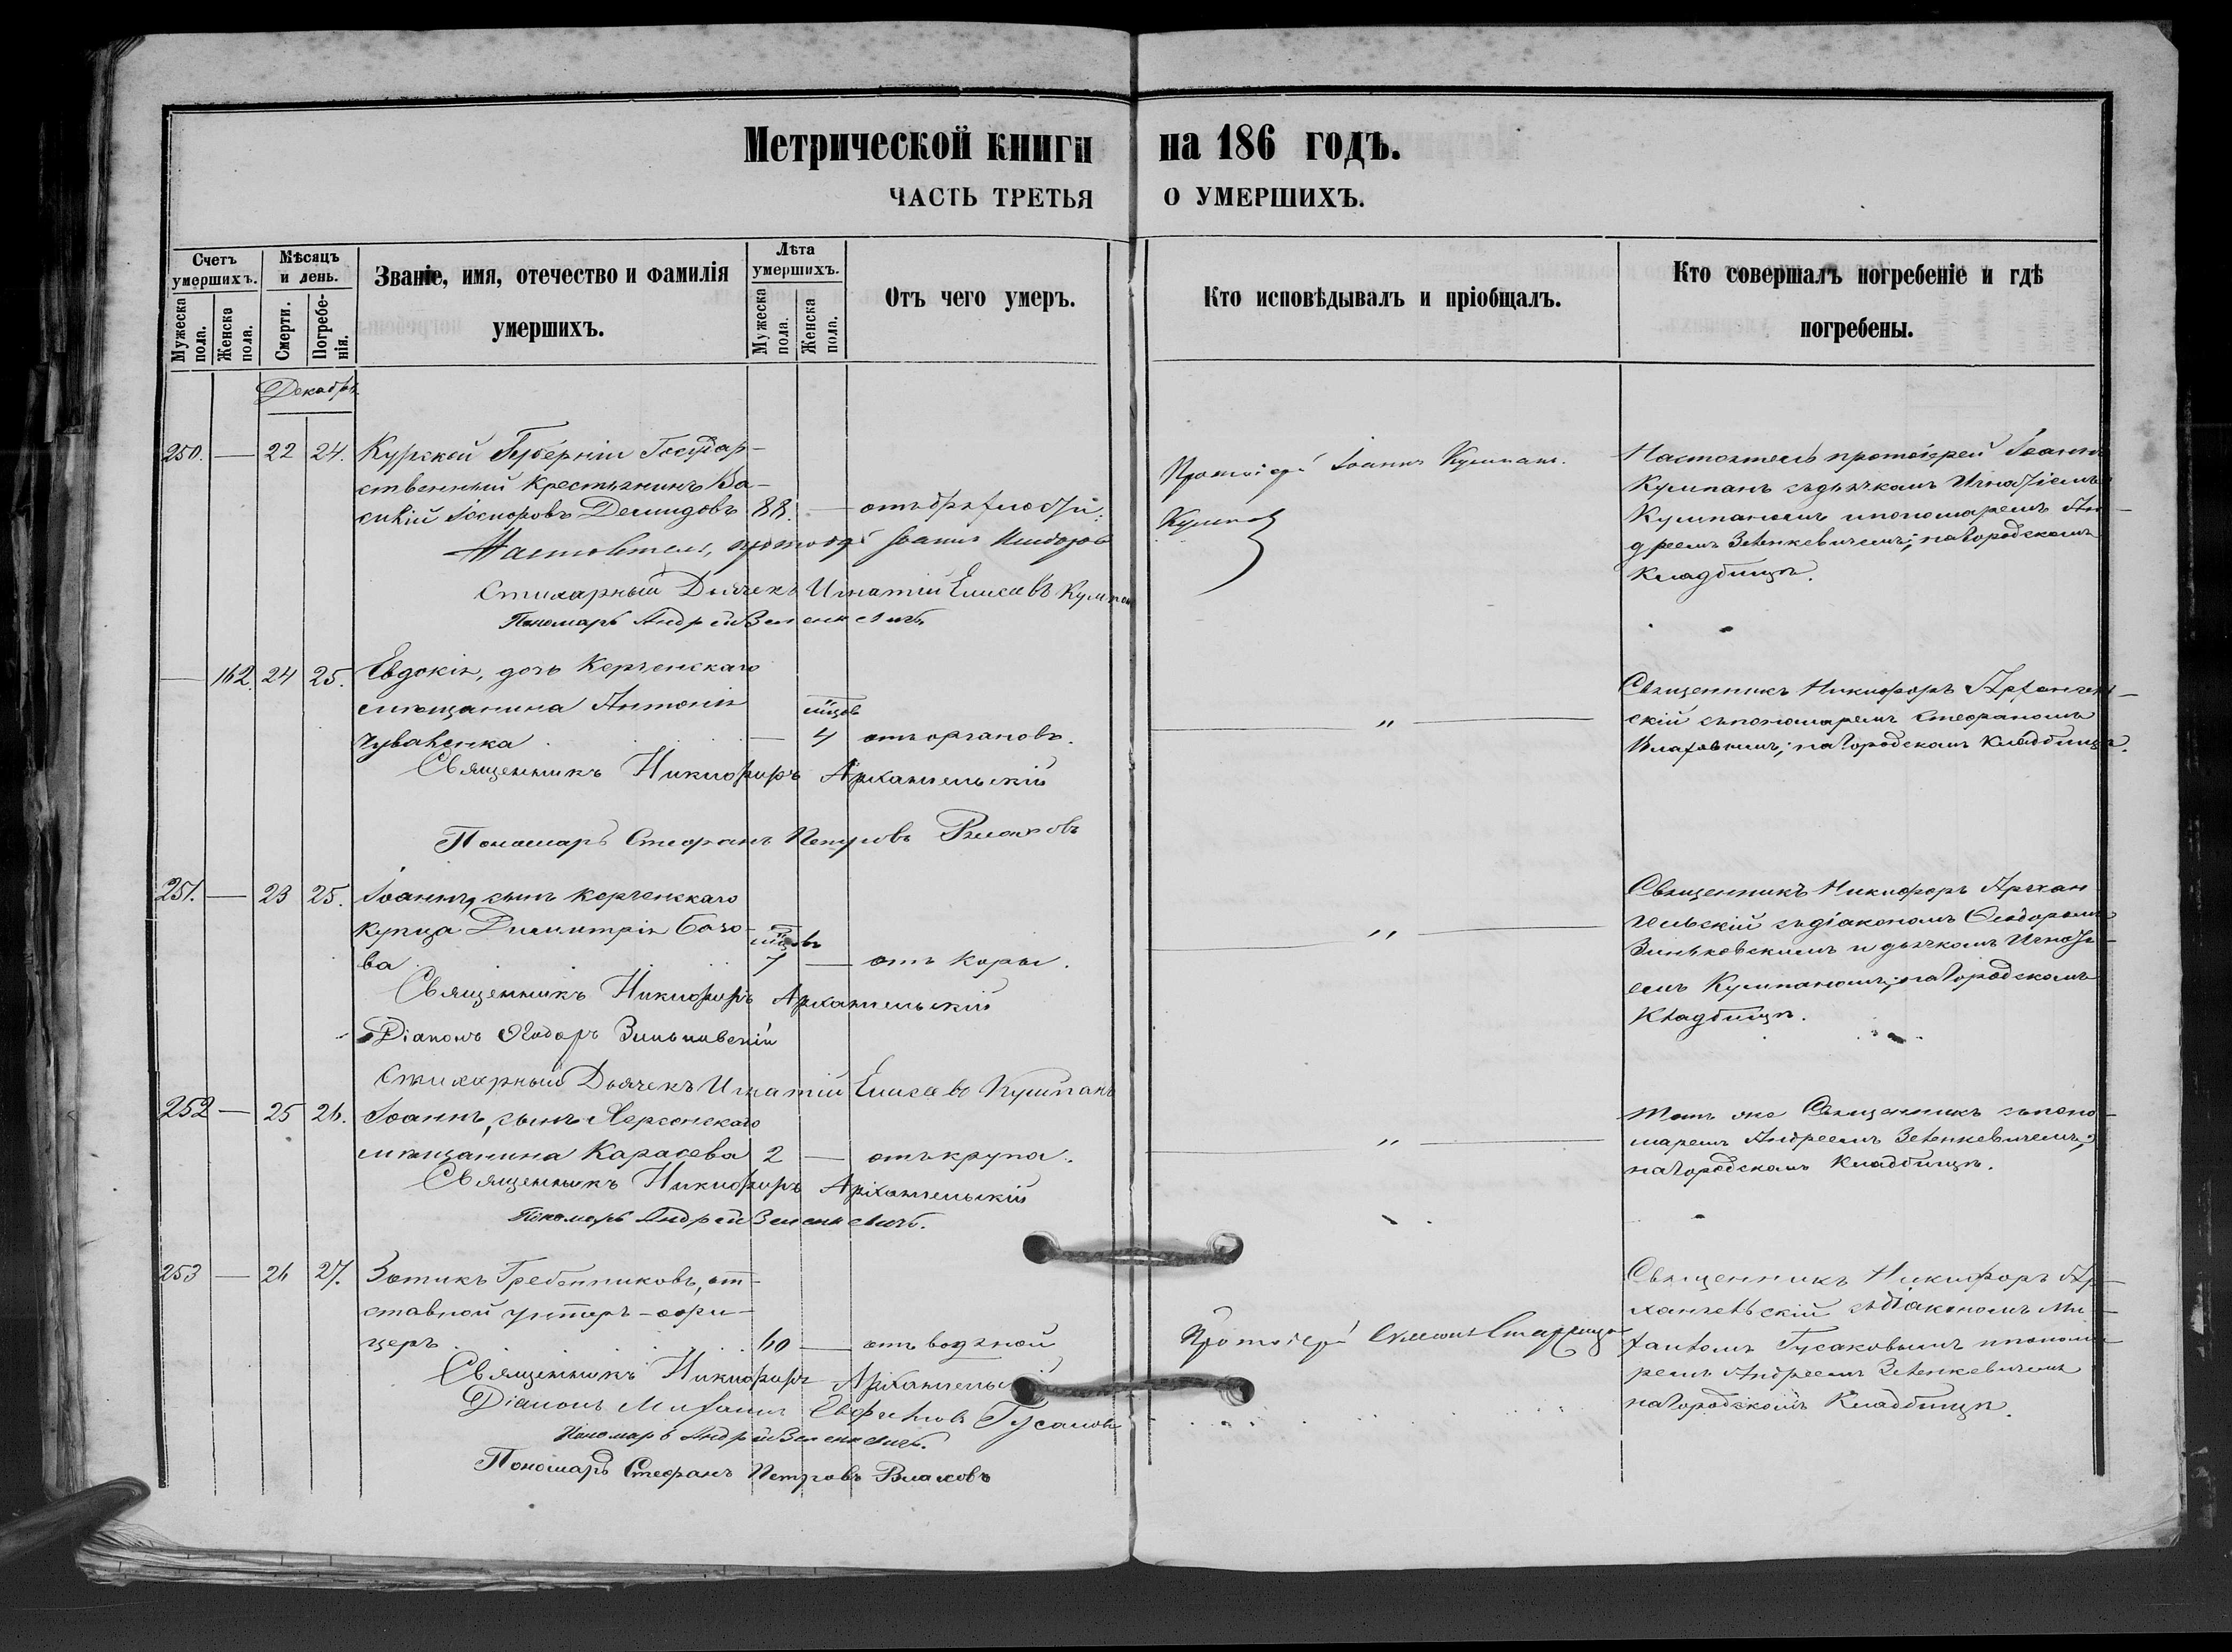 Метрической книги на 186 годъ.
ЧАСТЬ ТРЕТЬЯ О УМЕРШИХЪ.
Счетъ умершихъ.
Мужеска пола.
Женска пола.
Мѣсяцъ и день.
Смерти.
Погребенія.
Званіе, имя, отечество и фамилія
умершихъ.
Лѣта умершихъ.
Мужеска пола.
Женска пола.
Отъ чего умеръ.
Кто исповѣдывалъ и пріобщалъ.
Кто совершалъ погребеніе и гдѣ
погребены.
Декабрь
250. — 22 24. Курской Губерніи Государ-
ственный крестьянинъ Ва-
силій Демидовъ 88. — отъ дряхлости.
Настоятель, протоіерей Іоаннъ
Стихарный Дьячекъ Игнатій Елисеевъ Кулпан
Пономарь Андрей Зеленкевичъ.
Протоіерей Іоаннъ Кумпанъ.
Настоятель протоіерей Іоаннъ
Кумпанъ съ дьячкомъ Игнатіемъ
Кумпаномъ и пономаремъ Ан-
дреемъ Зеленкевичемъ; на Городскомъ
Кладбищѣ.
— 162. 24 25. Евдокія, дочь Керченскаго
мѣщанина Антонія
мѣсяцовъ
Чуваленка — 4 отъ органовъ.
Священникъ Никифоръ Архангельскій
Пономарь Стефанъ Петровъ Влаховъ
"
Священникъ Никифоръ Архангель-
скій съ пономаремъ Стефаномъ
Влаховымъ; на Городскомъ Кладбищѣ.
251. — 23 25. Іоаннъ, сынъ Керченскаго
купца Димитрія Базо-
мѣсяцовъ
ва 7 — отъ коры.
Священникъ Никифоръ Архангельскій
Діаконъ Ѳеодоръ Зиньковскій
Стихарный Дьячекъ Игнатій Елисеевъ Кумпанъ
"
Священникъ Никифоръ Архан
гельскій съ діакономъ Ѳеодоромъ
Зиньковскимъ и дьячкомъ Игнаті-
емъ Кумпаномъ; на Городскомъ
Кладбищѣ.
252 — 25 26. Іоаннъ, сынъ Херсонскаго
мѣщанина Карасева 2 — отъ крупа.
Священникъ Никифоръ Архангельскій
Пономарь Андрей Зеленкевичъ.
"
Тотъ же Священникъ съ поно-
маремъ Андреемъ Зеленкевичемъ;
на Городскомъ Кладбищѣ.
253 — 26 27. Зотикъ Гребенниковъ, от-
ставной унтеръ-офи-
церъ 60 — отъ водяной
Священникъ Никифоръ Архангельскій
Діаконъ Михаилъ Гусаковъ
Пономарь Андрей Зеленкевичъ.
Пономарь Стефанъ Петровъ Влаховъ
Протоіерей
Священникъ Никифоръ Ар-
хангельскій съ діакономъ Ми-
хаиломъ Гусаковымъ и понома-
ремъ Андреемъ Зеленкевичемъ
на Городскомъ Кладбищѣ.